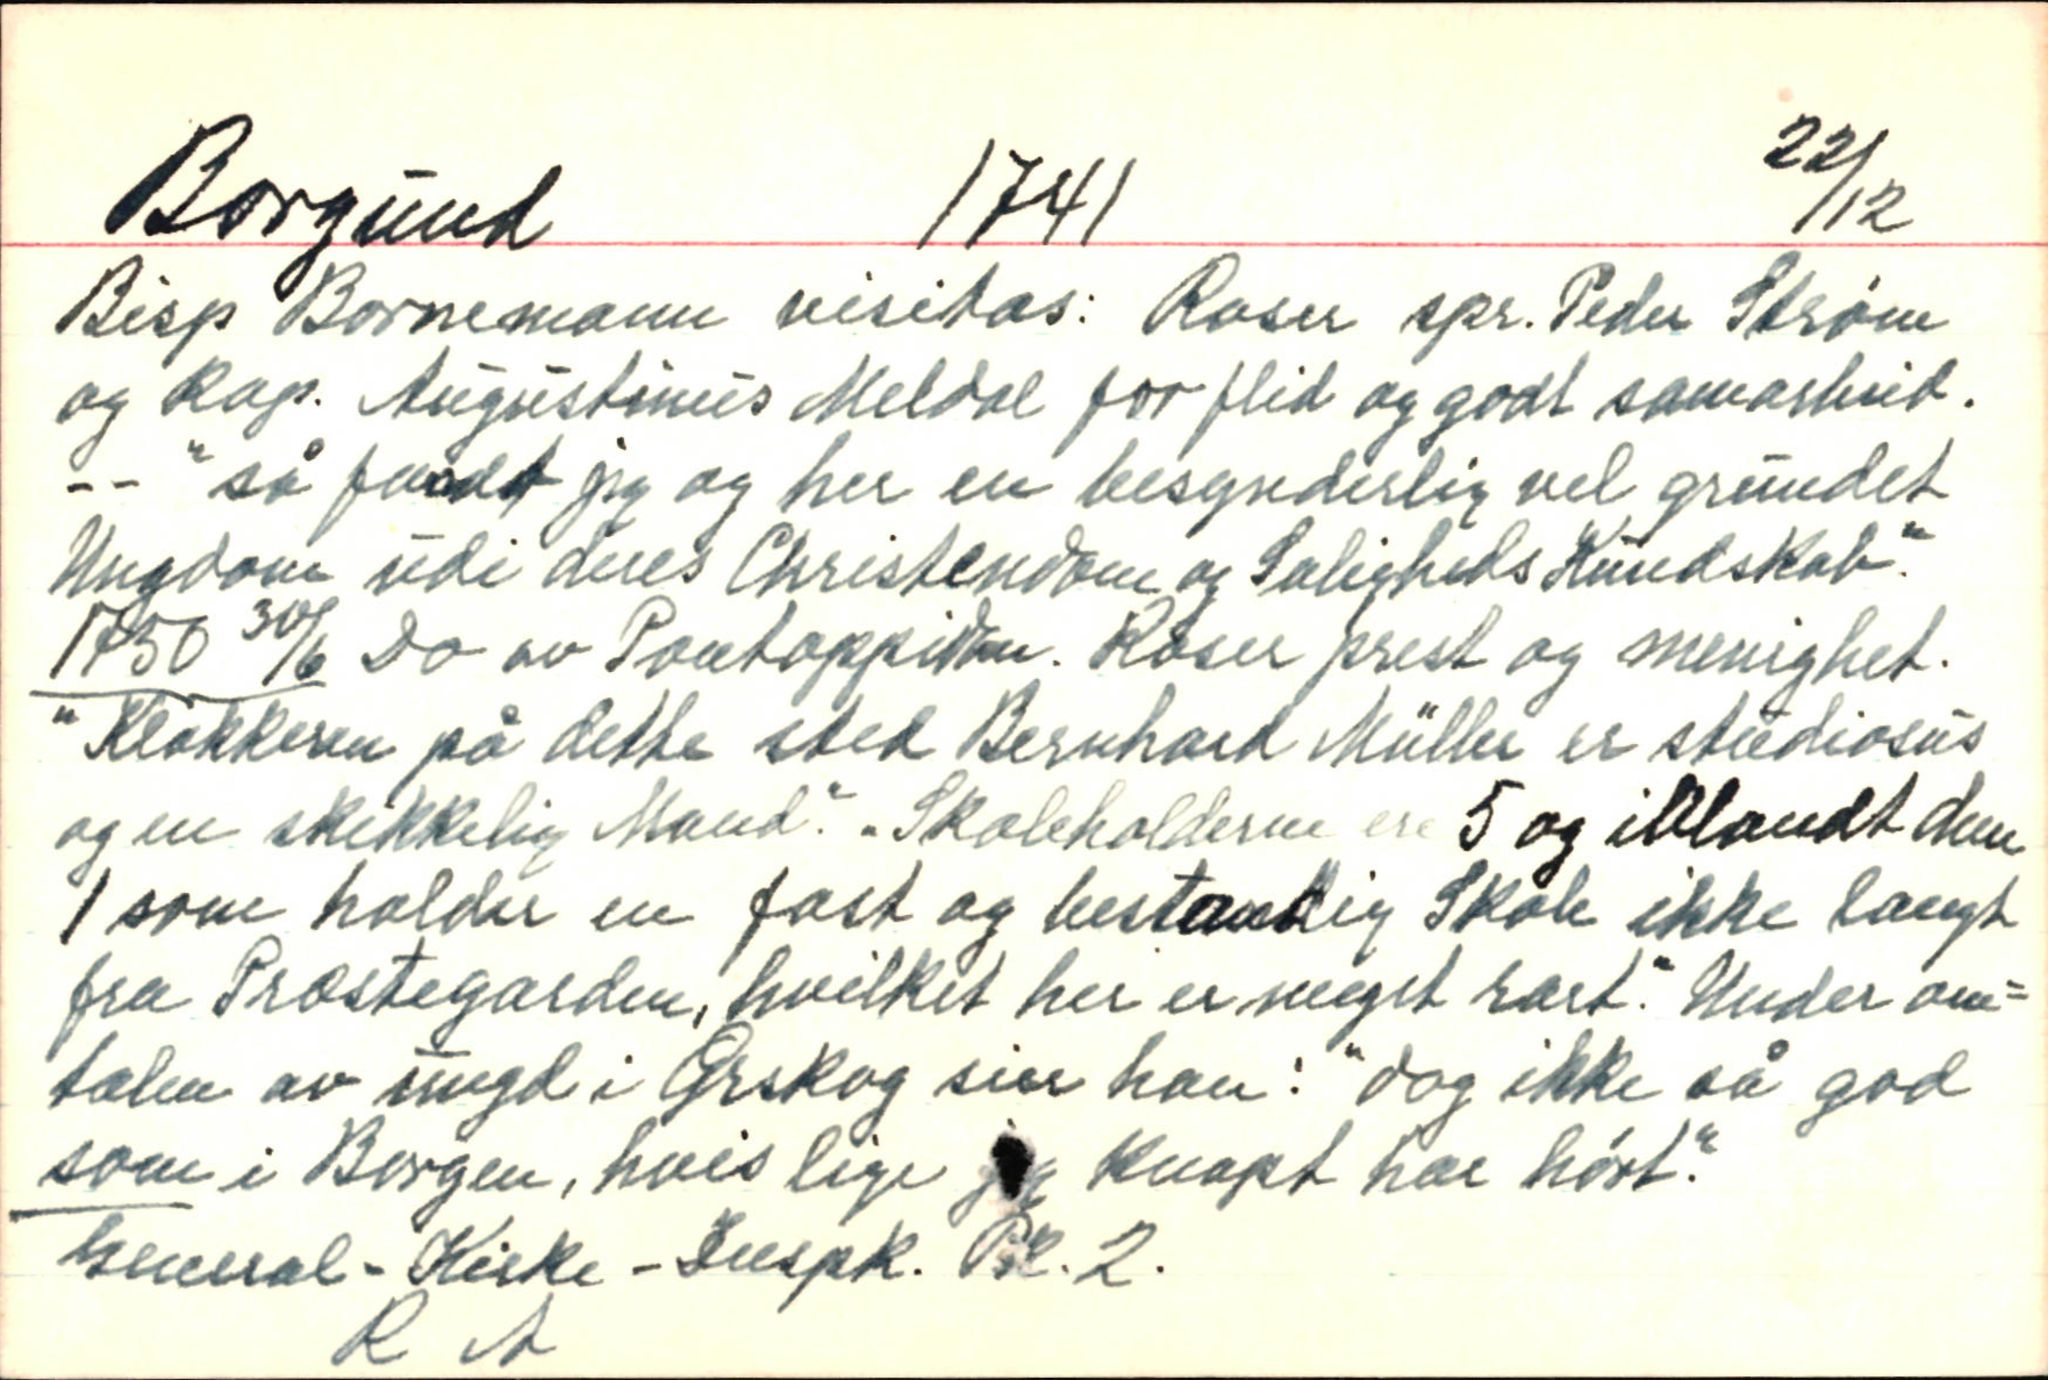 Borgund 1741 22/12
Bisp Bornemann visitas: Roser spr. Peder Strøm
og Kap. Augustinus Meldal for flid og godt samarbeid.
-- "så fandt jeg og her en besynderlig vel grundet
Ungdom udi deres Christendom og Saligheds Kundskab".
1750 30/6 Do av Pontoppidan. Roser prest og menighet.
"Klokkeren på dette sted Bernhard Müller er studiosus
og en skikkelig Mand". "Skoleholderne ere 5 og iblandt dem
1 som holder en fast og bestandig Skole ikke langt
fra Præstegarden, hvilket her er meget rart". Under om=
talen av ungd i Ørskog sier han: "dog ikke så god
som i Borgen, hvis lige jeg knapt har hört".
General-Kirke-Inspk. Pk. 2.
R A